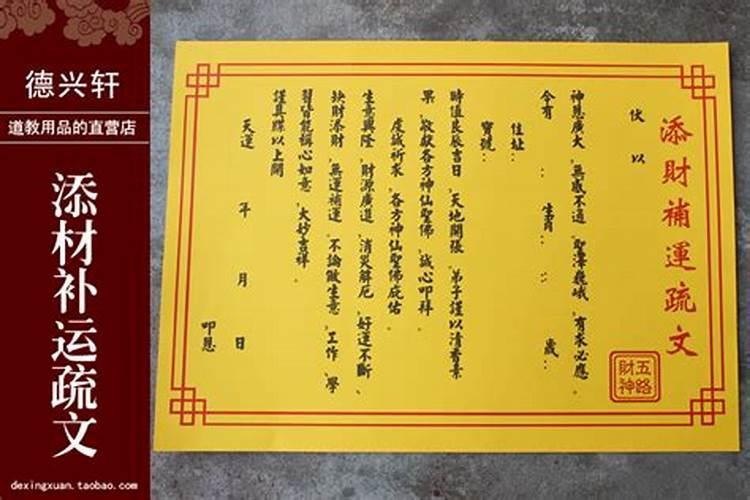 德兴轩
道教用品的直营店
添材补运疏文
dexingxuan.taobao.com
添財補運疏文
伏以
神恩廣大、無感不通、聖澤巍峨、有求必應。
今有 : 生肖: : 歲:
住址:
寶號:
時值良辰吉日、天地開張、弟子謹以清香素
果、敬獻各方神仙聖佛、誠心叩拜。
虔誠祈求、各方神仙聖佛庇佑。
生意興隆、財源廣進、消災解厄、好運不斷、
缺財添財、無運補運、不論做生意、工作、學
習皆能稱心如意、大妙吉祥。
謹具牒以上聞
天運 年 月 日
叩恩
五路
財神